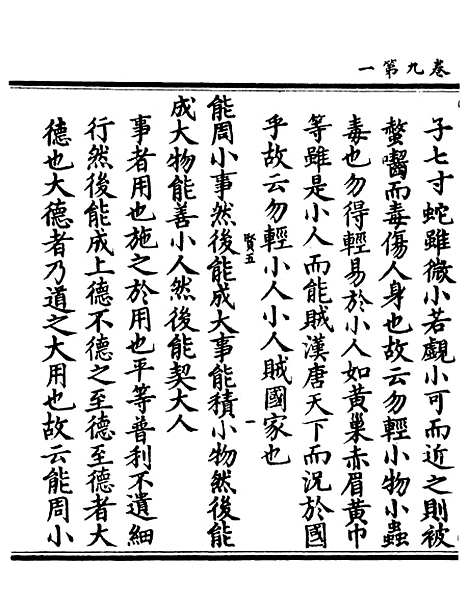 卷九第一
子七寸蛇雖微小若覰小可而近之則被
螫囓而毒傷人身也故云勿輕小物小蟲
毒也勿得輕易於小人如黃巢赤眉黃巾
等雖是小人而能賊漢唐天下而況於國
乎故云勿輕小人小人賊國家也
賢五
一
能周小事然後能成大事能積小物然後能
成大物能善小人然後能契大人
事者用也施之於用也平等普利不遺細
行然後能成上德不德之至德至德者大
德也大德者乃道之大用也故云能周小